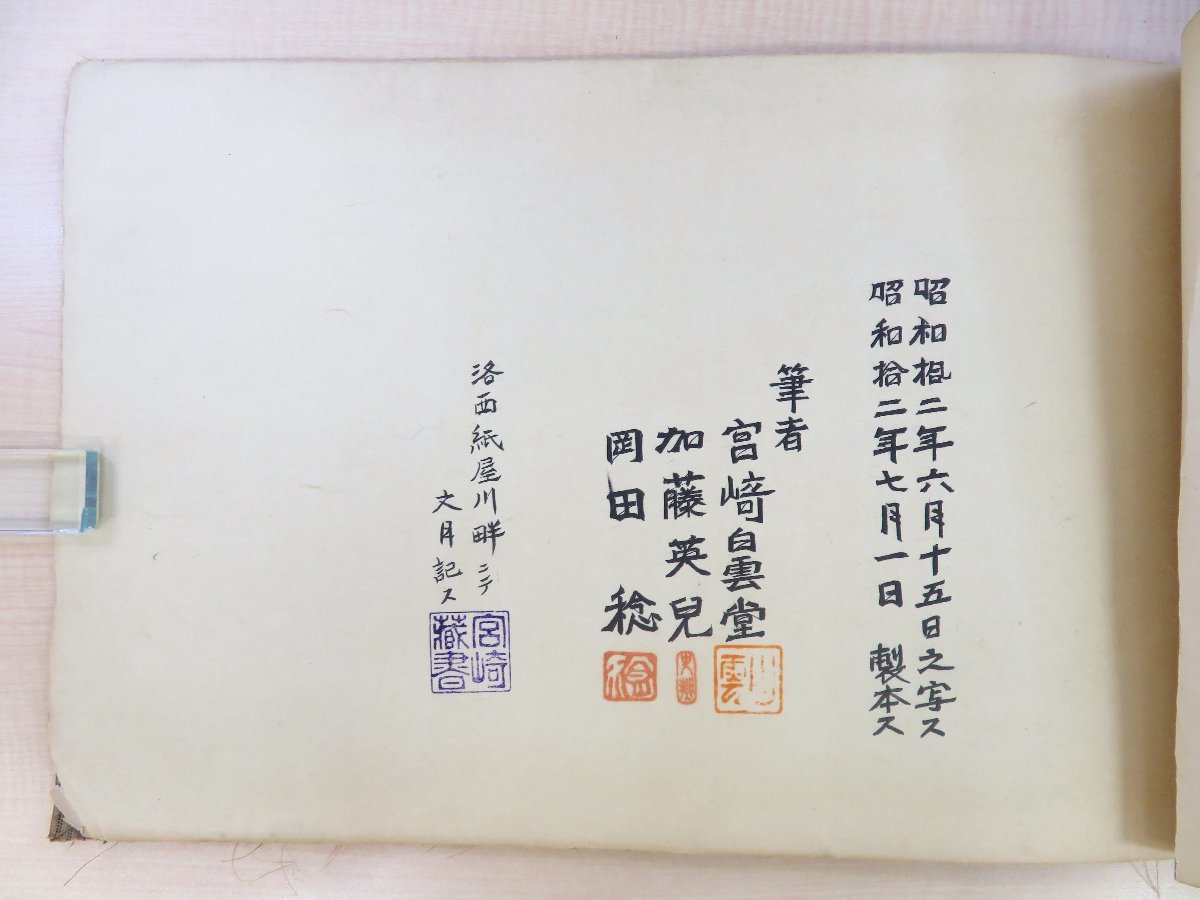 昭和拾二年六月十五日之写ス
昭和拾二年七月一日 製本ス
筆者
宮﨑白雲堂
加藤英兒
岡田稔
洛西紙屋川畔ニテ
文月記ス
宮崎
蔵書